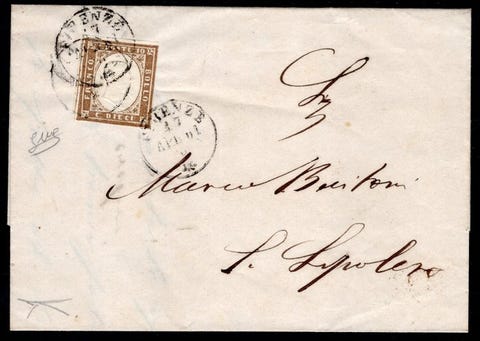 FIRENZE
17
FRANCO CENT. 10 BOLLO C. DIECI
FIRENZE
17
APR. 61
Marco Buitoni
S. Sepolcro